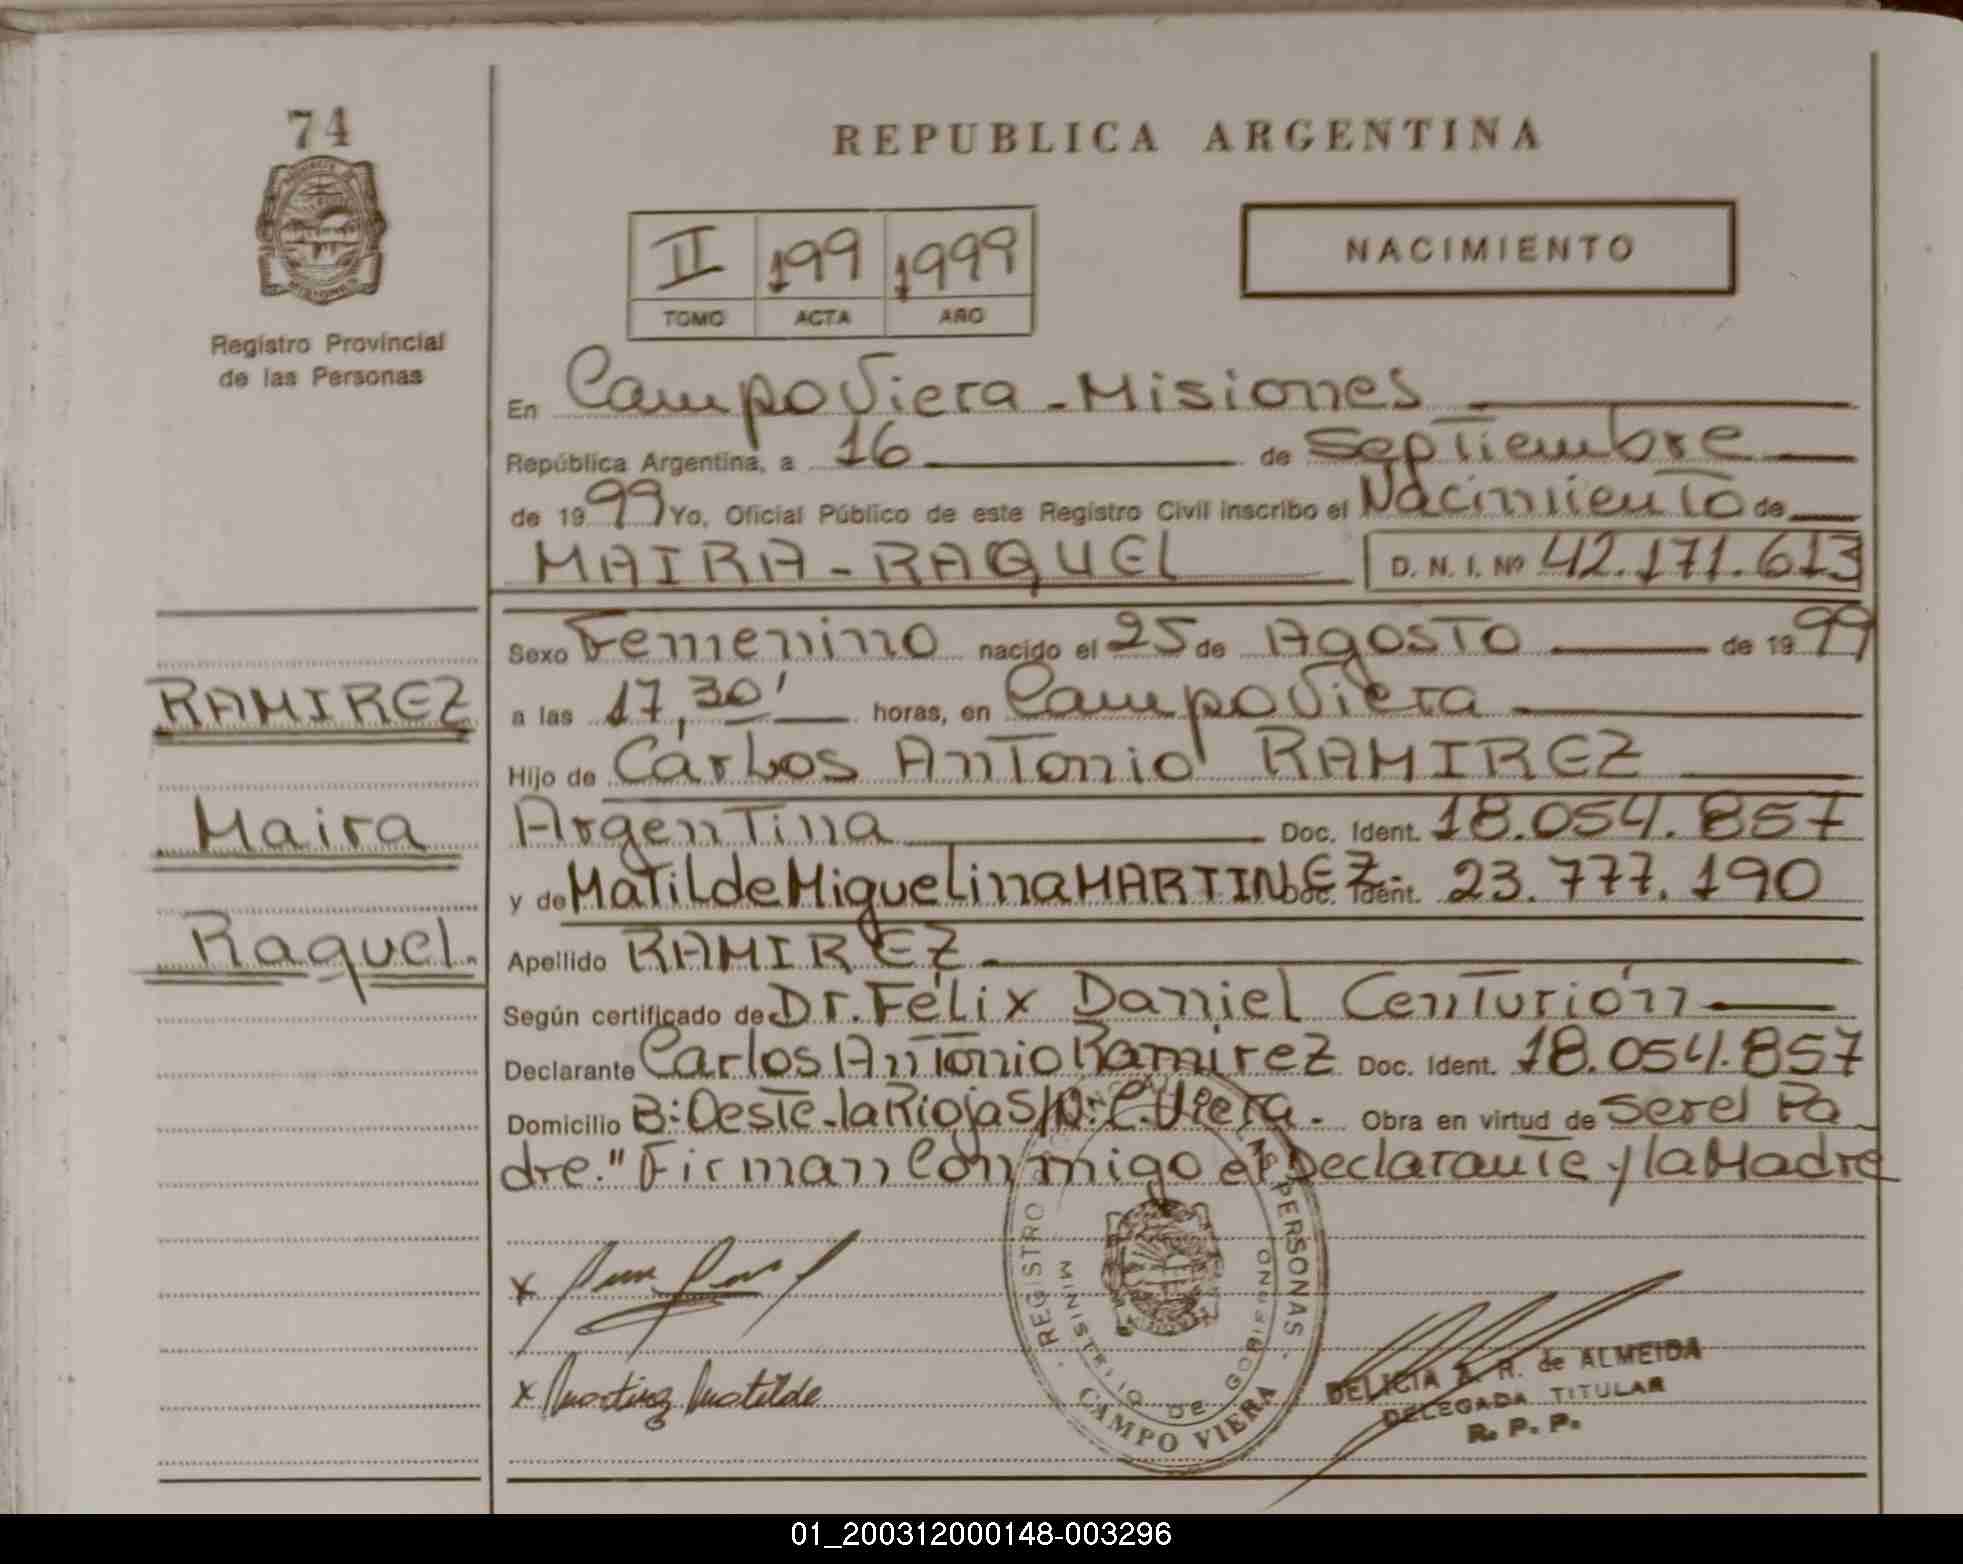 74
Registro Provincial
de las Personas
RAMIREZ
Maira
Raquel.
REPUBLICA ARGENTINA
II 199 1999
TOMO ACTA AÑO
NACIMIENTO
En Campo Viera - Misiones
República Argentina, a 16 de Septiembre
de 1999 Yo, Oficial Público de este Registro Civil inscribo el Nacimiento de
MAIRA - RAQUEL D. N. I. Nº 42.171.613
Sexo Femenino nacido el 25 de Agosto de 1999
a las 17,30' horas, en Campo Viera
Hijo de Carlos Antonio RAMIREZ
Argentina Doc. Ident. 18.054.857
y de Matilde Miguelina MARTINEZ- Doc. Ident. 23.777.190
Apellido RAMIREZ
Según certificado de Dr. Félix Daniel Centurión
Declarante Carlos Antonio Ramirez Doc. Ident. 18.054.857
Domicilio B: Oeste - la Rioja S/N: C. Viera. Obra en virtud de ser el Pa
dre." Firman Conmigo el Declarante y la Madre
x
x Martinez Matilde
REGISTRO LAS PERSONAS
MINISTERIO DE GOBIERNO
CAMPO VIERA
DELICIA R. de ALMEIDA
DELEGADA TITULAR
R. P. P.
01_200312000148-003296